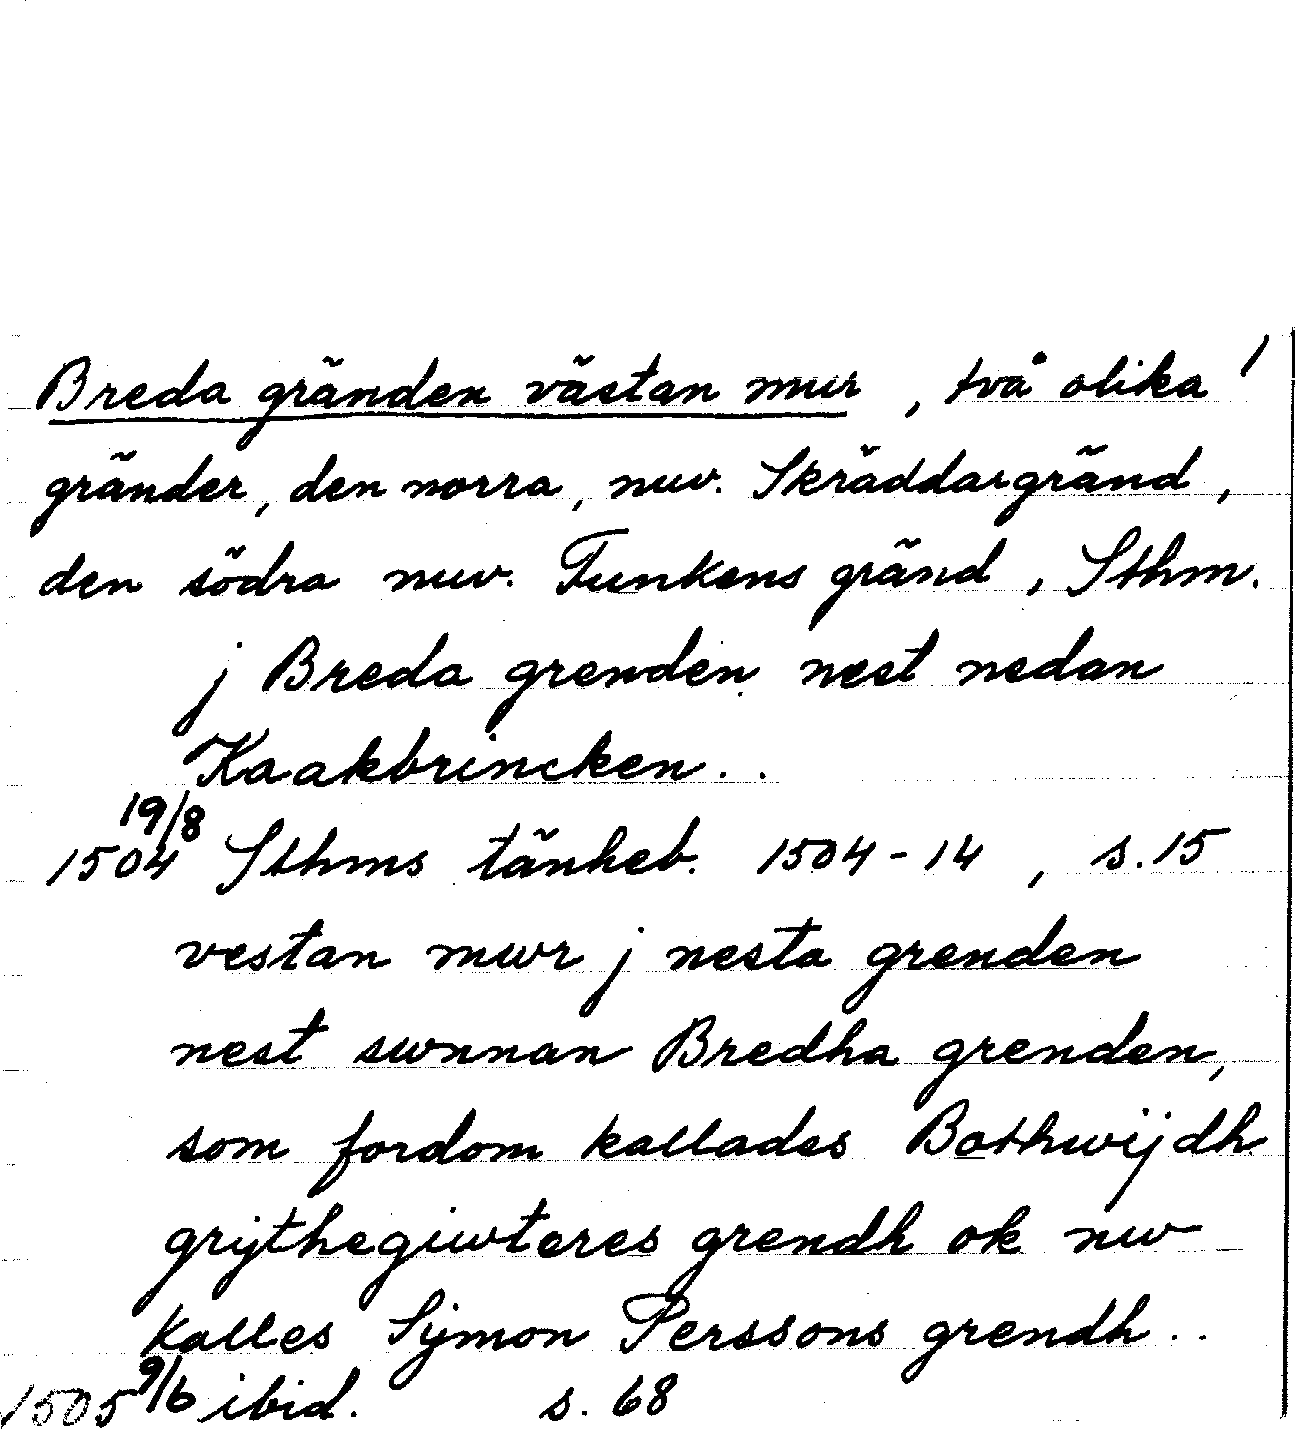 Breda gränden västan mur, två olika /
gränder, den norra, nuv. Skräddargränd,
den södra nuv. Funkens gränd, Sthm.
j Breda grenden nest nedan
Kaakbrincken..
19/8
1504 Sthms tänkeb. 1504-14, s. 15
vestan mwr j nesta grenden
nest swnnan Bredha grenden,
som fordom kallades Bothwijdh
grijthegiwteres grendh ok nw
kalles Sijmon Perssons grendh..
1505 9/6 ibid. s. 68